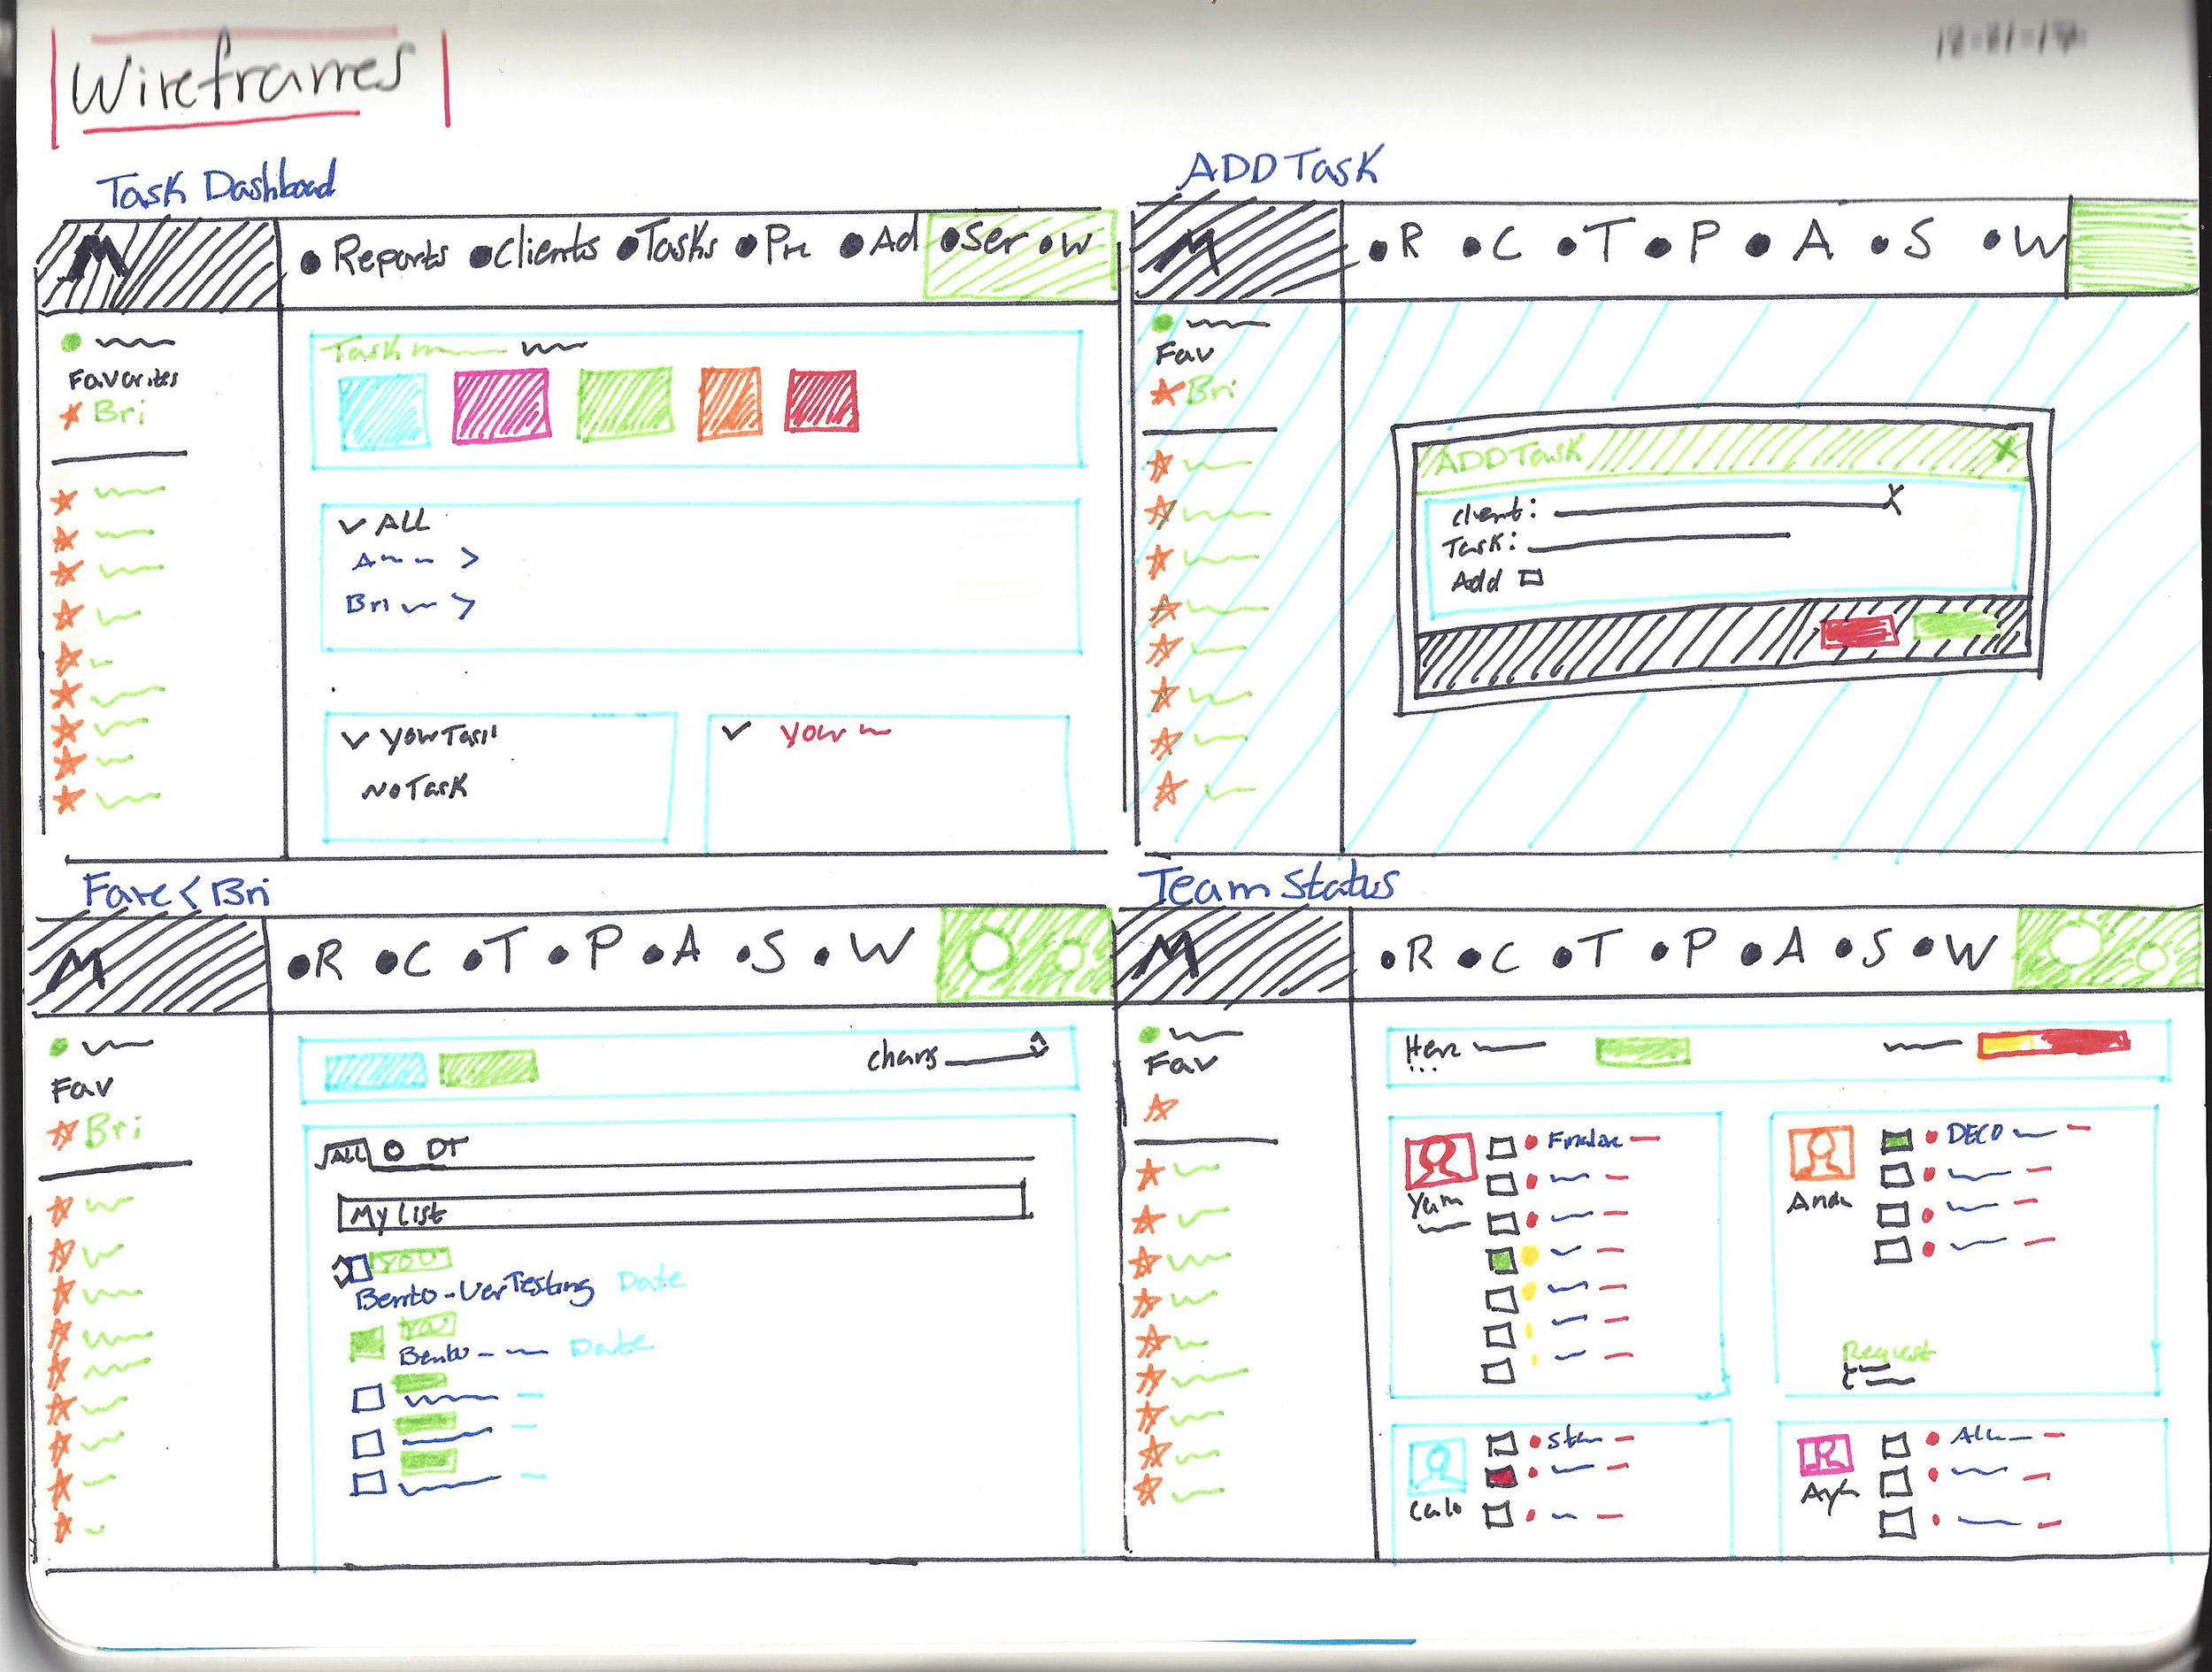 Wireframes
Task Dashboad
M
Reports Clients Tasks Pr Ad Ser W
Favorites
Bri
Task
ALL
A
Bri
Your Task
No Task
Your
ADD Task
M
R C T P A S W
Fav
Bri
ADD Task X
Client: X
Task:
Add
Fave < Bri
M
R C T P A S W
Fav
Bri
ALL DT
My List
You
Bento - Testing Date
Bento - Date
Team Status
M
R C T P A S W
Fav
Yam
DECO
Request